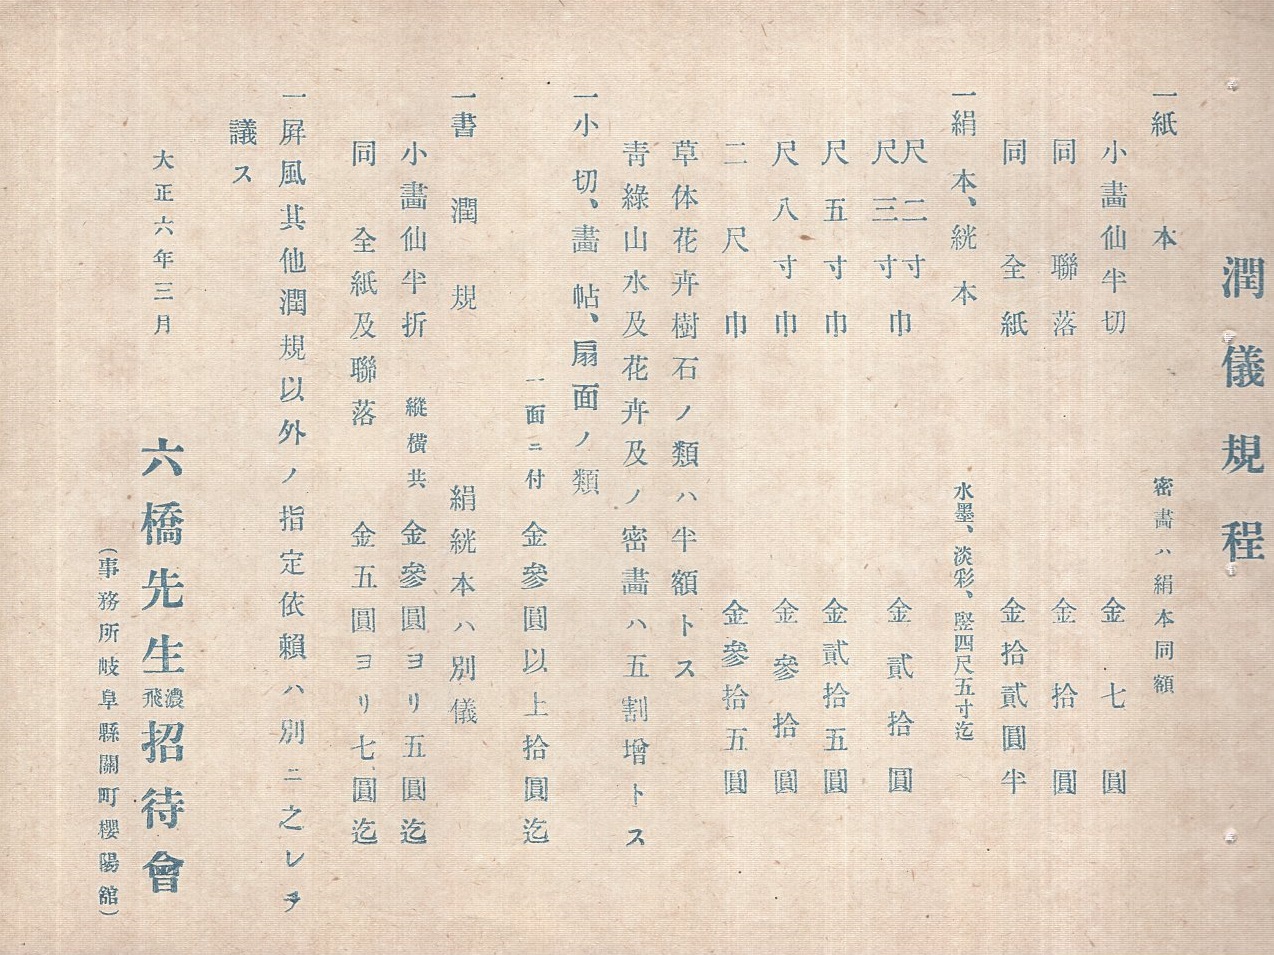 潤儀規程
一紙本 密畵ハ絹本同額
小畵仙半切 金七圓
同聯落 金拾圓
同全紙 金拾貳圓半
一絹本、絖本 水墨、淡彩、竪四尺五寸迄
尺二寸巾
尺三寸巾 金貳拾圓
尺五寸巾 金貳拾五圓
尺八寸巾 金參拾圓
二尺巾 金參拾五圓
草体花卉樹石ノ類ハ半額トス
青綠山水及花卉及ノ密畵ハ五割增トス
一小切、畵帖、扇面ノ類
一面ニ付 金參圓以上拾圓迄
一書潤規 絹絖本ハ別儀
小畵仙半折 縱橫共 金參圓ヨリ五圓迄
同全紙及聯落 金五圓ヨリ七圓迄
一屛風其他潤規以外ノ指定依賴ハ別ニ之レヲ
議ス
大正六年三月
六橋先生濃飛招待會
(事務所岐阜縣關町櫻陽舘)